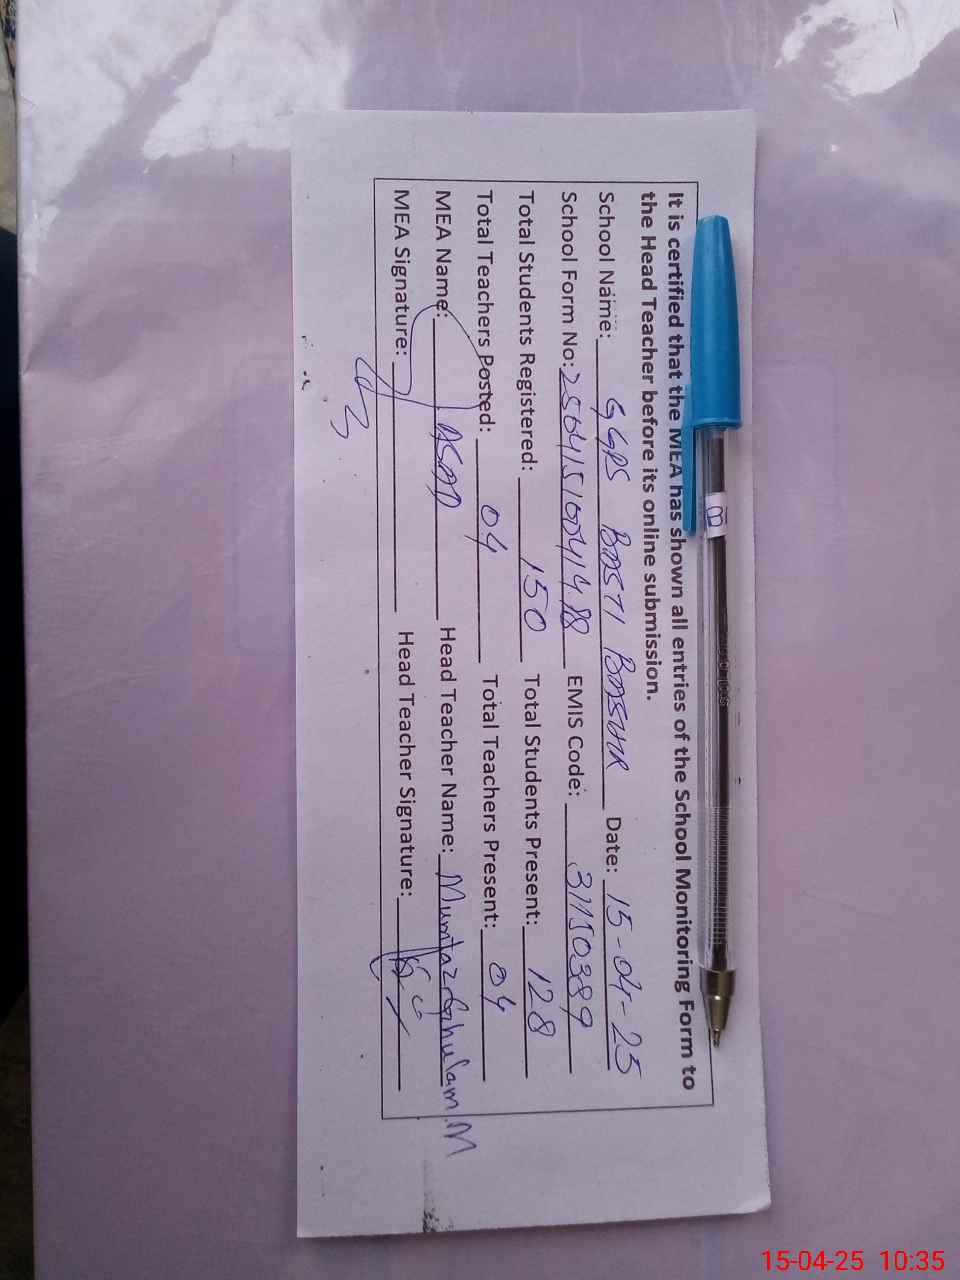 It is certified that the MEA has shown all entries of the School Monitoring Form to
the Head Teacher before its online submission.
School Name: GGPS BASTI BASHIR Date: 15-04-25
School Form No: EMIS Code: 31150389
Total Students Registered: 150 Total Students Present: 128
Total Teachers Posted: 04 Total Teachers Present: 04
MEA Name: ASAD Head Teacher Name: Mumtaz Ghulam M
MEA Signature: Head Teacher Signature:
15-04-25 10:35